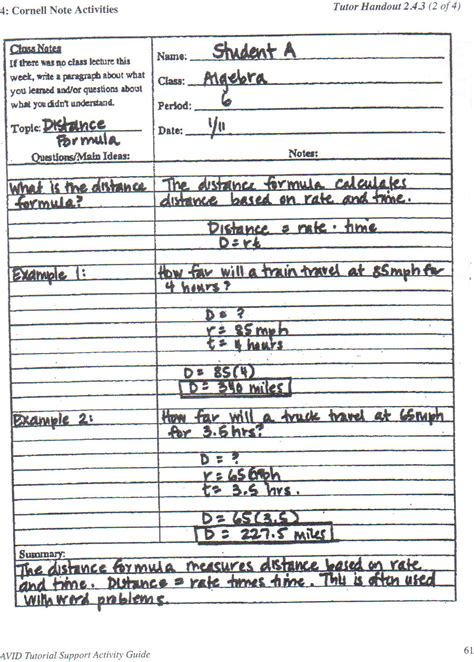 4: Cornell Note Activities
Tutor Handout 2.4.3 (2 of 4)
Class Notes
If there was no class lecture this
week, write a paragraph about what
you learned and/or questions about
what you didn't understand.
Topic: Distance
Formula
Questions/Main Ideas:
Name: Student A
Class: Algebra
Period: 6
Date: 1/11
Notes:
What is the distance
formula?
The distance formula calculates
distance based on rate and time.
Distance = rate · time
D = rt
Example 1:
How far will a train travel at 85mph for
4 hours?
D = ?
r = 85 mph
t = 4 hours
D = 85(4)
D = 340 miles
Example 2:
How far will a truck travel at 65mph
for 3.5 hrs?
D = ?
r = 65 mph
t = 3.5 hrs.
D = 65(3.5)
D = 227.5 miles
Summary:
The distance formula measures distance based on rate
and time. Distance = rate times time. This is often used
with word problems.
AVID Tutorial Support Activity Guide
61